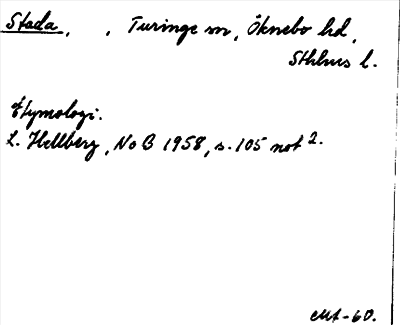 Stada, , Turinge sn, Öknebo hd,
Sthlms l.
Etymologi.
L. Hellberg, NoB 1958, s. 105 not 2.
CMt-60.